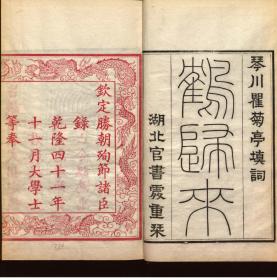 琴川瞿菊亭填詞
鶴歸來
湖北官書處重栞
欽定勝朝殉節諸臣
錄
乾隆四十一年
十一月大學士
等奉